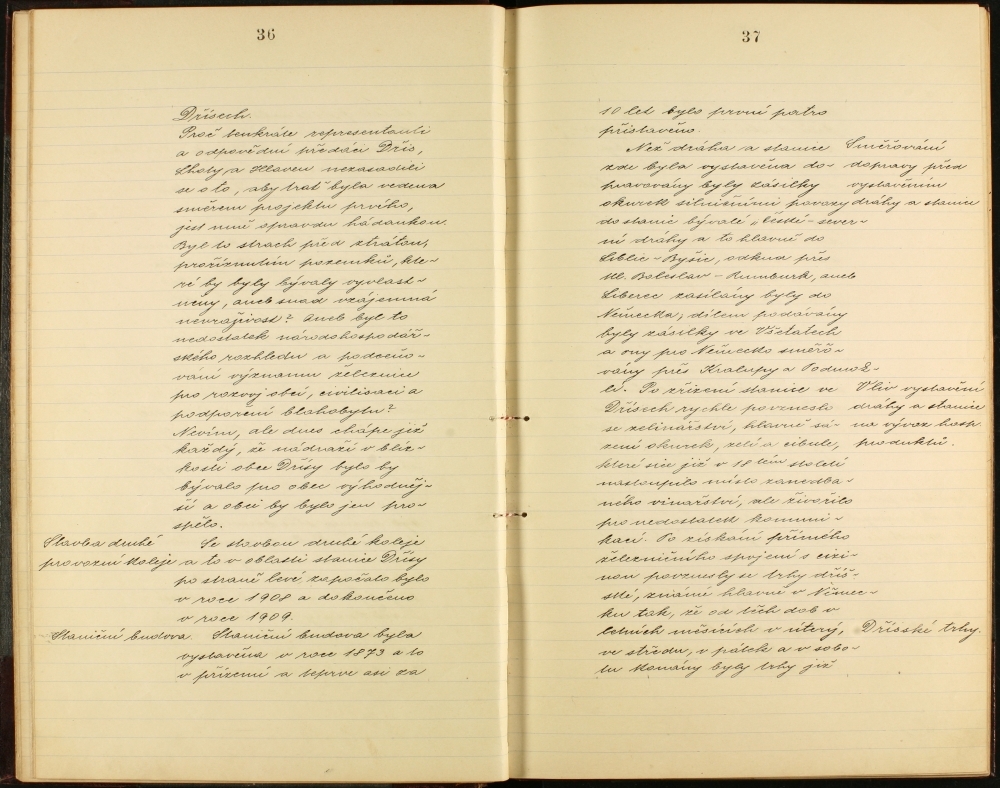 36
Dřísech.
Proč tenkráte representanti
a odpovědní předáci Dřís,
Lhoty, a Hlaven nezasadili
se o to, aby trať byla vedena
směrem projektu prvého,
jest mně opravdu hádankou.
Byl to strach před ztrátou,
proříznutím pozemků, kte-
ré by byly bývaly vyvlast-
něny, aneb snad vzájemná
nevraživost? Aneb byl to
nedostatek národohospodář-
ského rozhledu a podceňo-
vání významu železnice
pro rozvoj obcí, civilisaci a
podporení blahobytu?
Nevím, ale dnes chápe již
každý, že nádraží v blíz-
kosti obce Dřísy bylo by
bývalo pro obec výhodněj-
ší a obci by bylo jen pro-
spělo.
Stavba druhé
provozní koleje
Se stavbou druhé koleje
a to v oblasti stanice Dřísy
po straně levé započato bylo
v roce 1908 a dokončeno
v roce 1909.
Staniční budova.
Staniční budova byla
vystavěna v roce 1873 a to
v přízemí a teprve asi za
37
10 let bylo první patro
přistavěno.
Než dráha a stanice
zde byla vystavěna do-
pravovány byly zásilky
okurek silničními povozy
do stanic bývalé „České-sever-
ní dráhy a to hlavně do
Liblic-Byšic, odkud přes
Ml. Boleslav-Rumburk, aneb
Liberec zasílány byly do
Německa; dílem podávány
byly zásilky ve Všetatech
a ony pro Německo směřo-
vány přes Kralupy a Podmok-
ly. Po zřízení stanice ve
Dřísech rychle povzneslo
se zelinářství, hlavně sá-
zení okurek, zelí a cibule,
které sice již v 18 tém století
nastoupilo místo zanedba-
ného vinařství, ale živořilo
pro nedostatek kommuni-
kací. Po získaní přímého
železničního spojení s cizi-
nou povznesly se trhy dřís-
ské, známé hlavně v Němec-
ku tak, že od těch dob v
letních měsících v úterý,
ve středu, v pátek a v sobo-
tu konány byly trhy již
Směřování
dopravy před
vystavěním
dráhy a stanice
Vliv vystavění
dráhy a stanice
na vývoz hosp.
produktů.
Dřísské trhy.